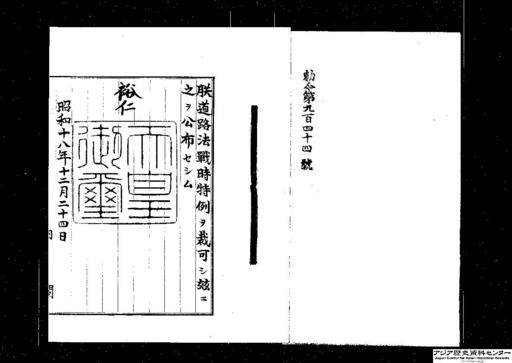 勅令第九百四十四號
朕道路法戰時特例ヲ裁可シ玆ニ
之ヲ公布セシム
裕仁
天皇御璽
昭和十八年十二月二十四日
内閣
アジア歴史資料センター
Japan Center for Asian Historical Records